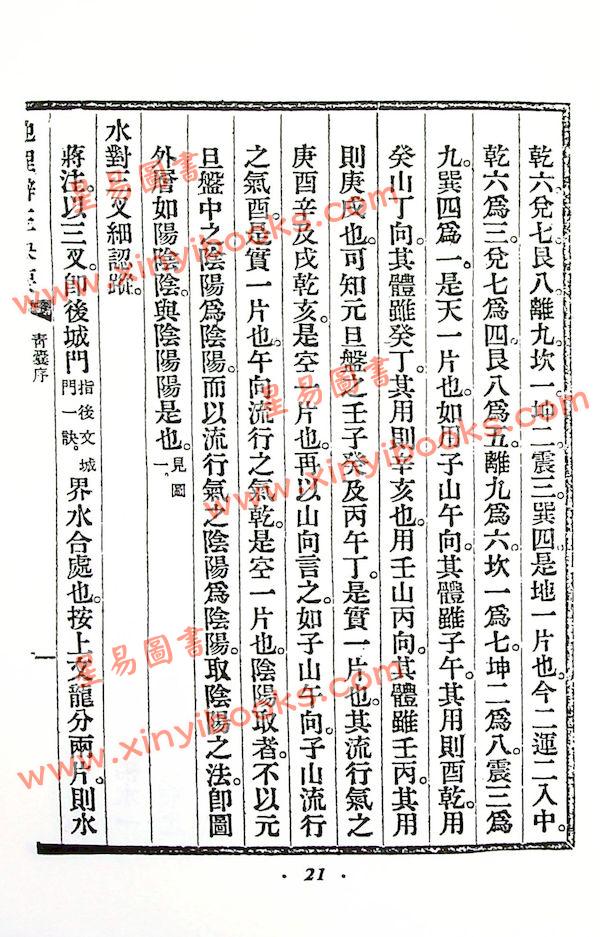 乾六。兌七。艮八。離九。坎一。地二。震三。巽四。是地一片也。今二運二入中。
乾六爲三。兌七爲四。艮八爲五。離九爲六。坎一爲七。坤二爲八。震三爲
九。巽四爲一。是天一片也。如用子山午向。其體雖子午。其用則酉乾。用
癸山丁向。其體雖癸丁。其用則辛亥也。用壬山丙向。其體雖壬丙。其用
則庚戌也。可知元旦盤之壬子癸及丙午丁。是實一片也。其流行氣之
庚酉辛及戌乾亥。是空一片也。再以山向言之。如子山午向。子山流行
之氣酉。是實一片也。午向流行之氣乾。是空一片也。陰陽取者。不以元
旦盤中之陰陽爲陰陽。而以流行氣之陰陽爲陰陽。取陰陽之法。卽圖
外層如陽陰陰與陰陽陽是也。見圖一。
水對三叉細認蹤。
蔣法。以三叉。卽後城門指後文城門一訣。界水合處也。按上文龍分兩片。則水
青囊序
一
· 21 ·
星易圖書
www.xinyibooks.com
星易圖書
www.xinyibooks.com
星易圖書
www.xinyibooks.com